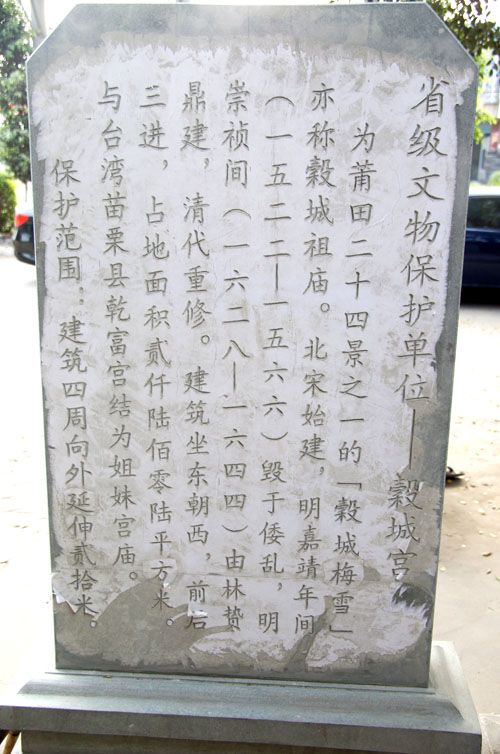 省级文物保护单位——縠城宫
为莆田二十四景之一的「縠城梅雪」
亦称縠城祖庙。北宋始建，明嘉靖年间
（一五二二—一五六六）毁于倭乱，明
崇祯间（一六二八—一六四四）由林贽
鼎建，清代重修。建筑坐东朝西，前后
三进，占地面积贰仟陆佰零陆平方米。
与台湾苗栗县乾富宫结为姐妹宫庙。
保护范围：建筑四周向外延伸贰拾米。